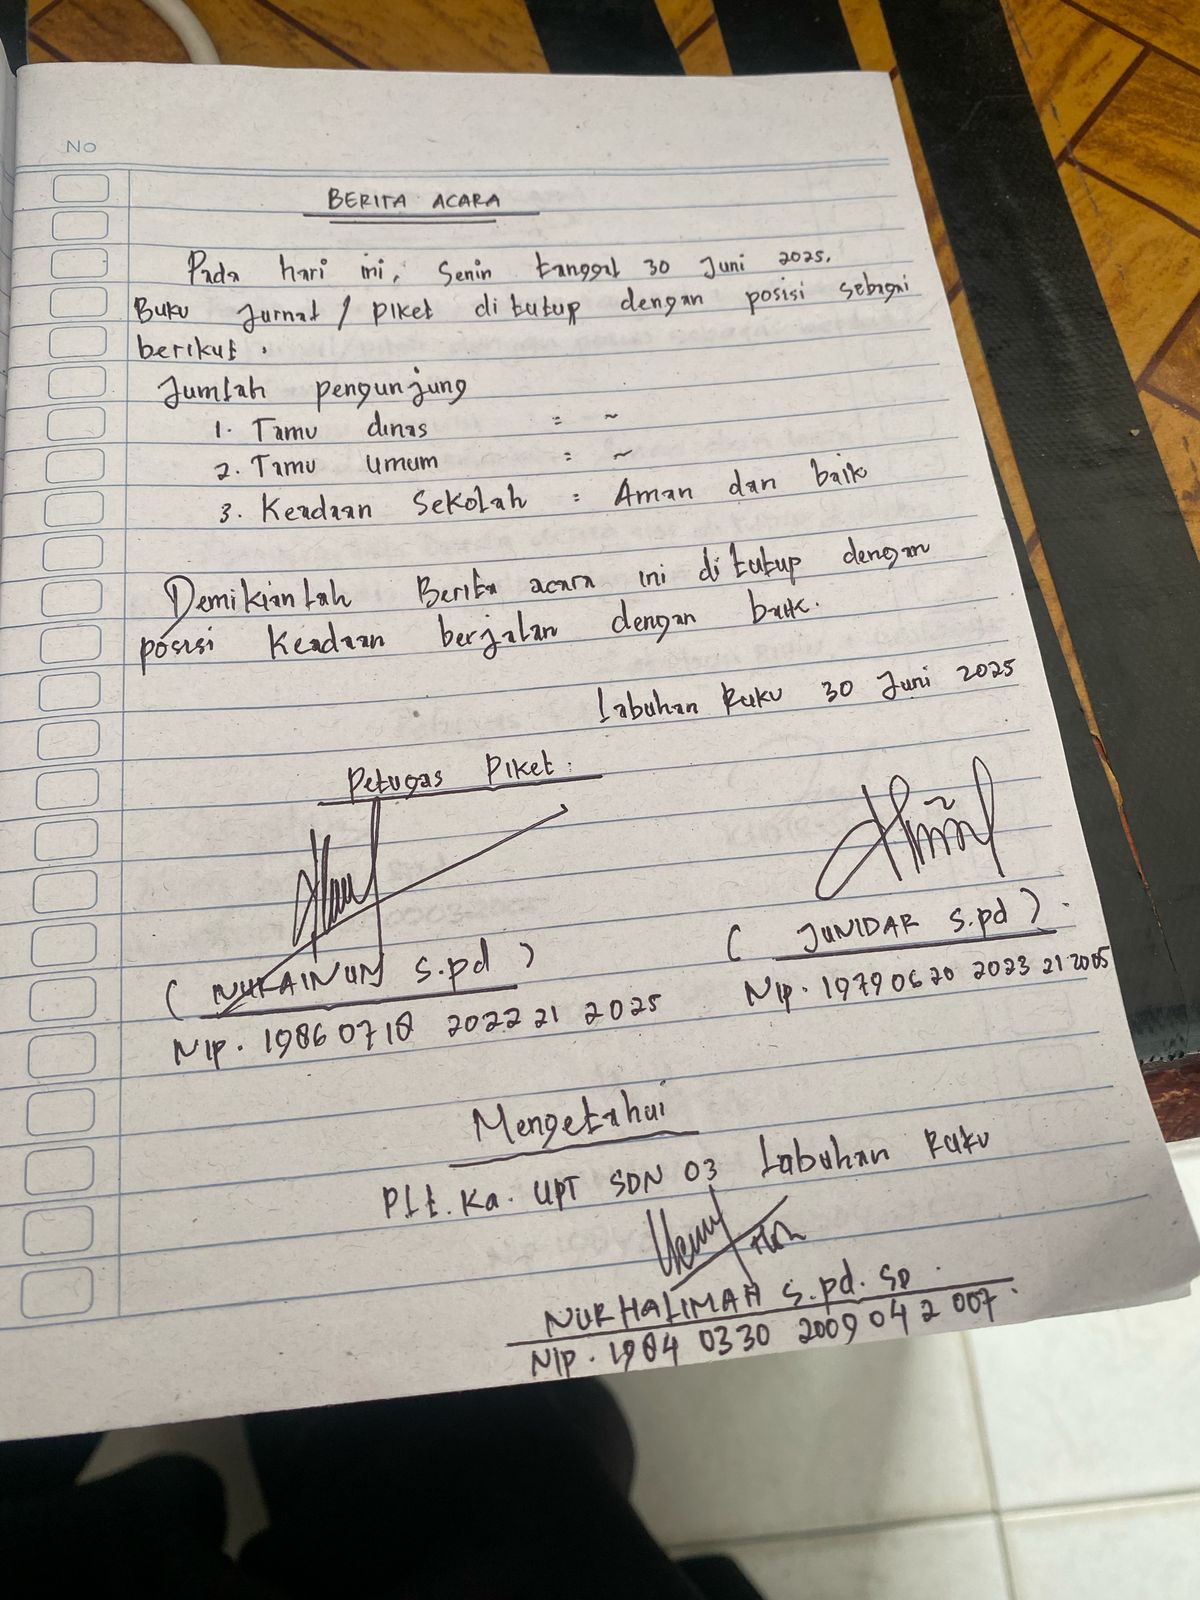 No
BERITA ACARA
Pada hari ini, Senin tanggal 30 Juni 2025.
Buku Jurnal / piket di tutup dengan posisi sebagai
berikut.
Jumlah pengunjung
1. Tamu dinas = ~
2. Tamu umum = ~
3. Keadaan Sekolah = Aman dan baik
Demikianlah Berita acara ini di tutup dengan
posisi Keadaan berjalan dengan baik.
Labuhan Ruku 30 Juni 2025
Petugas Piket:
( NURAINUN S.pd )
( JUNIDAR S.pd ).
NIP. 19860718 2022 21 2025
NIP. 19790620 2023 21 2005
Mengetahui
Plt. Ka. UPT SDN 03 Labuhan Ruku
NURHALIMAH S.pd. SD.
NIP. 1984 0330 2009 04 2 007.